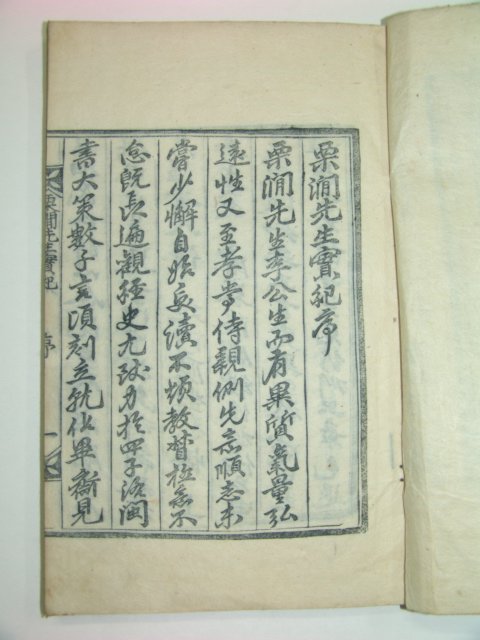 栗澗先生實紀序
栗澗先生李公生而有異質氣量弘
遠性又至孝常侍親側先意順志未
嘗少懈自始受讀不煩教督極意不
怠旣長遍觀經史尤致力於四子洛閩
書大策數子言頃刻立就仳畢齋見
栗澗先生實紀
序
一